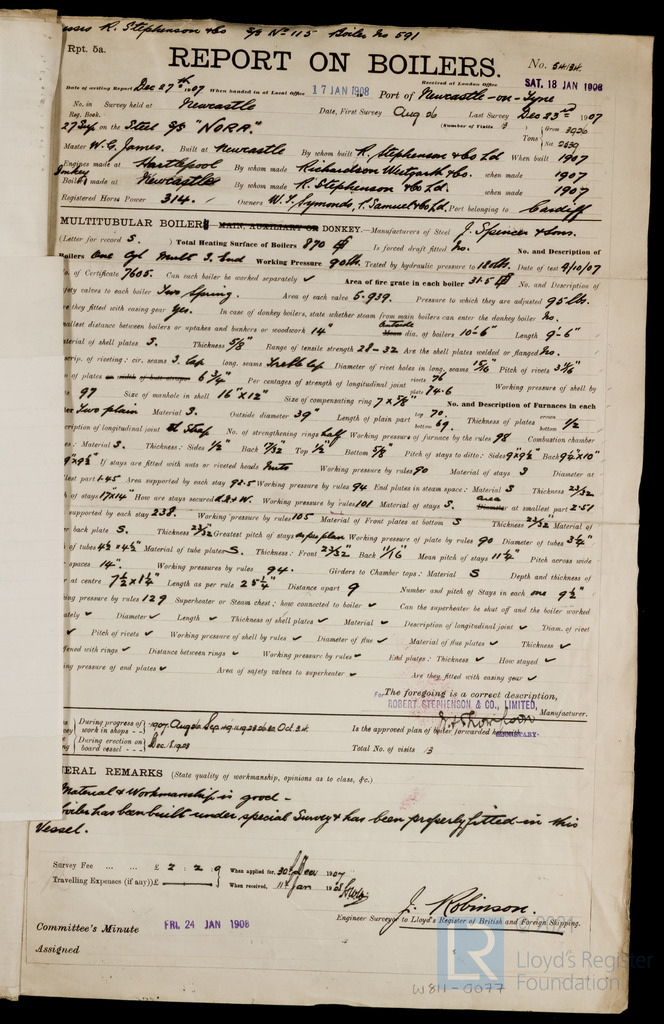 R. Stephenson & Co S/S No 115 Boiler No 591
Rpt. 5a.
REPORT ON BOILERS.
No.
Received at London Office SAT. 18 JAN 1908
Date of writing Report Dec 27th 1907 When handed in at Local Office 17 JAN 1908 Port of Newcastle-on-Tyne
No. in Reg. Book. Survey held at Newcastle Date, First Survey Aug 06 Last Survey Dec 23rd 1907
27 Sup on the Steel S/S "NORA." (Number of Visits ) Tons Gross Net
Master W. G. James. Built at Newcastle By whom built R. Stephenson & Co Ld When built 1907
Engines made at Hartlepool By whom made Richardson Westgarth & Co. when made 1907
Donkey Boiler made at Newcastle By whom made R. Stephenson & Co Ld. when made 1907
Registered Horse Power 314. Owners W. J. Symonds, T. Samuel & Co Ld. Port belonging to Cardiff
MULTITUBULAR BOILERS MAIN, AUXILIARY OR DONKEY.—Manufacturers of Steel J. Spencer & Sons.
(Letter for record S. ) Total Heating Surface of Boilers 870 Is forced draft fitted No. No. and Description of
Boilers One Cyl Mult S. End Working Pressure 90 lbs. Tested by hydraulic pressure to 180 lbs. Date of test 4/10/07
of Certificate 7605. Can each boiler be worked separately ✓ Area of fire grate in each boiler 31.5 No. and Description of
safety valves to each boiler Two Spring. Area of each valve 5.939. Pressure to which they are adjusted 95 lbs.
they fitted with easing gear Yes. In case of donkey boilers, state whether steam from main boilers can enter the donkey boiler No.
smallest distance between boilers or uptakes and bunkers or woodwork 14" Outside dia. of boilers 10-6" Length 9-6"
material of shell plates S. Thickness 5/8" Range of tensile strength 28-32 Are the shell plates welded or flanged No.
Descrip. of riveting: cir. seams S. Lap long. seams Treble Lap Diameter of rivet holes in long. seams 15/16 Pitch of rivets 3 1/16"
of plates or width of butt straps 6 3/4" Per centages of strength of longitudinal joint rivets 76 plate 74.6 Working pressure of shell by
97 Size of manhole in shell 16"x12" Size of compensating ring 7x5/8" No. and Description of Furnaces in each
Two plain Material S. Outside diameter 39" Length of plain part top 70. bottom 69. Thickness of plates crown bottom 1/2
description of longitudinal joint Strap No. of strengthening rings half Working pressure of furnace by the rules 98 Combustion chamber
Material S. Thickness: Sides 1/2" Back 17/32 Top 1/2" Bottom 5/8" Pitch of stays to ditto: Sides 9x9 1/2 Back 9 1/4x10"
9"x9 1/2 If stays are fitted with nuts or riveted heads Nuts Working pressure by rules 90 Material of stays S Diameter at
smallest part 1.45 Area supported by each stay 92.5 Working pressure by rules 94 End plates in steam space: Material S Thickness 23/32
of stays 17"x14" How are stays secured D.N & W. Working pressure by rules 101 Material of stays S. Area at smallest part 2.51
supported by each stay 238. Working pressure by rules 105 Material of Front plates at bottom S Thickness 23/32" Material of
back plate S. Thickness 23/32 Greatest pitch of stays as per plan Working pressure of plate by rules 90 Diameter of tubes 3 1/4"
of tubes 4 1/2x4 1/2" Material of tube plates S. Thickness: Front 23/32" Back 11/16" Mean pitch of stays 11 1/4" Pitch across wide
spaces 14". Working pressures by rules 94. Girders to Chamber tops: Material S Depth and thickness of
at centre 7 1/2x1 1/4" Length as per rule 25 1/4" Distance apart 9 Number and pitch of Stays in each one 9 1/2"
working pressure by rules 129 Superheater or Steam chest; how connected to boiler ✓ Can the superheater be shut off and the boiler worked
separately ✓ Diameter ✓ Length ✓ Thickness of shell plates ✓ Material ✓ Description of longitudinal joint ✓ Diam. of rivet
✓ Pitch of rivets ✓ Working pressure of shell by rules ✓ Diameter of flue ✓ Material of flue plates ✓ Thickness ✓
stiffened with rings ✓ Distance between rings ✓ Working pressure by rules ✓ End plates: Thickness ✓ How stayed ✓
working pressure of end plates ✓ Area of safety valves to superheater ✓ Are they fitted with easing gear ✓
The foregoing is a correct description,
For ROBERT STEPHENSON & CO., LIMITED, Manufacturer.
SECRETARY.
During progress of work in shops - - 1907 Aug Sep Oct
During erection on board vessel - - - Dec
Is the approved plan of boiler forwarded herewith
Total No. of visits 13
GENERAL REMARKS (State quality of workmanship, opinions as to class, &c.)
Material & Workmanship is good -
boiler has been built under special Survey & has been properly fitted in this
Vessel.
Survey Fee ... ... £ 2 : 2 : 9 When applied for, 30th Dec 1907
Travelling Expenses (if any) £ When received, 11th Jan 1908
J. Robinson.
Engineer Surveyor to Lloyd's Register of British and Foreign Shipping.
Committee's Minute FRI. 24 JAN 1908
Assigned
© 2021
LR Lloyd's Register Foundation
W811-0077